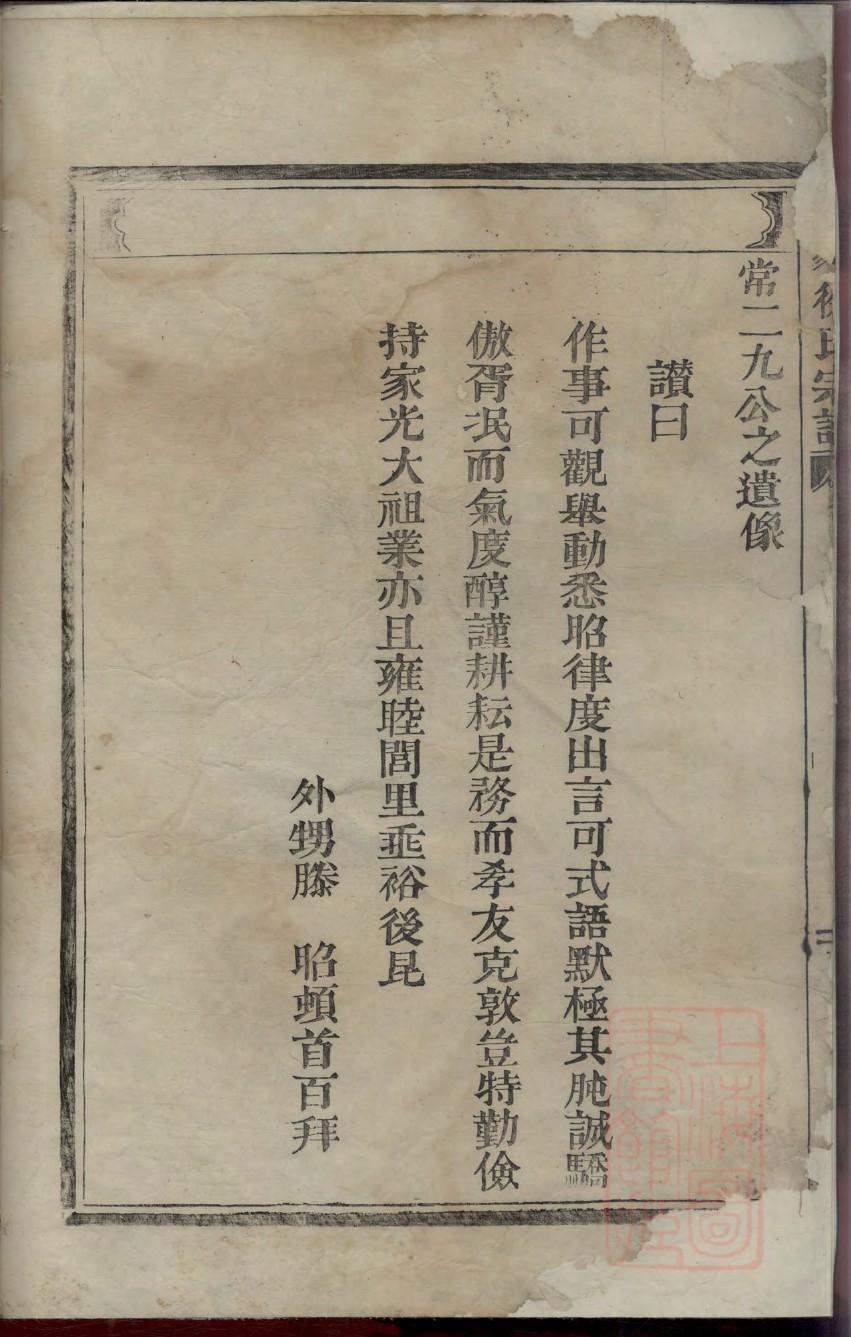 徐氏宗譜
常二九公之遺像
讃曰
作事可觀舉動悉昭律度出言可式語默極其肫誠驕
傲胥泯而氣度醇謹耕耘是務而孝友克敦豈特勤儉
持家光大祖業亦且雍睦閭里垂裕後昆
外甥滕　昭頓首百拜
上海圖書館藏